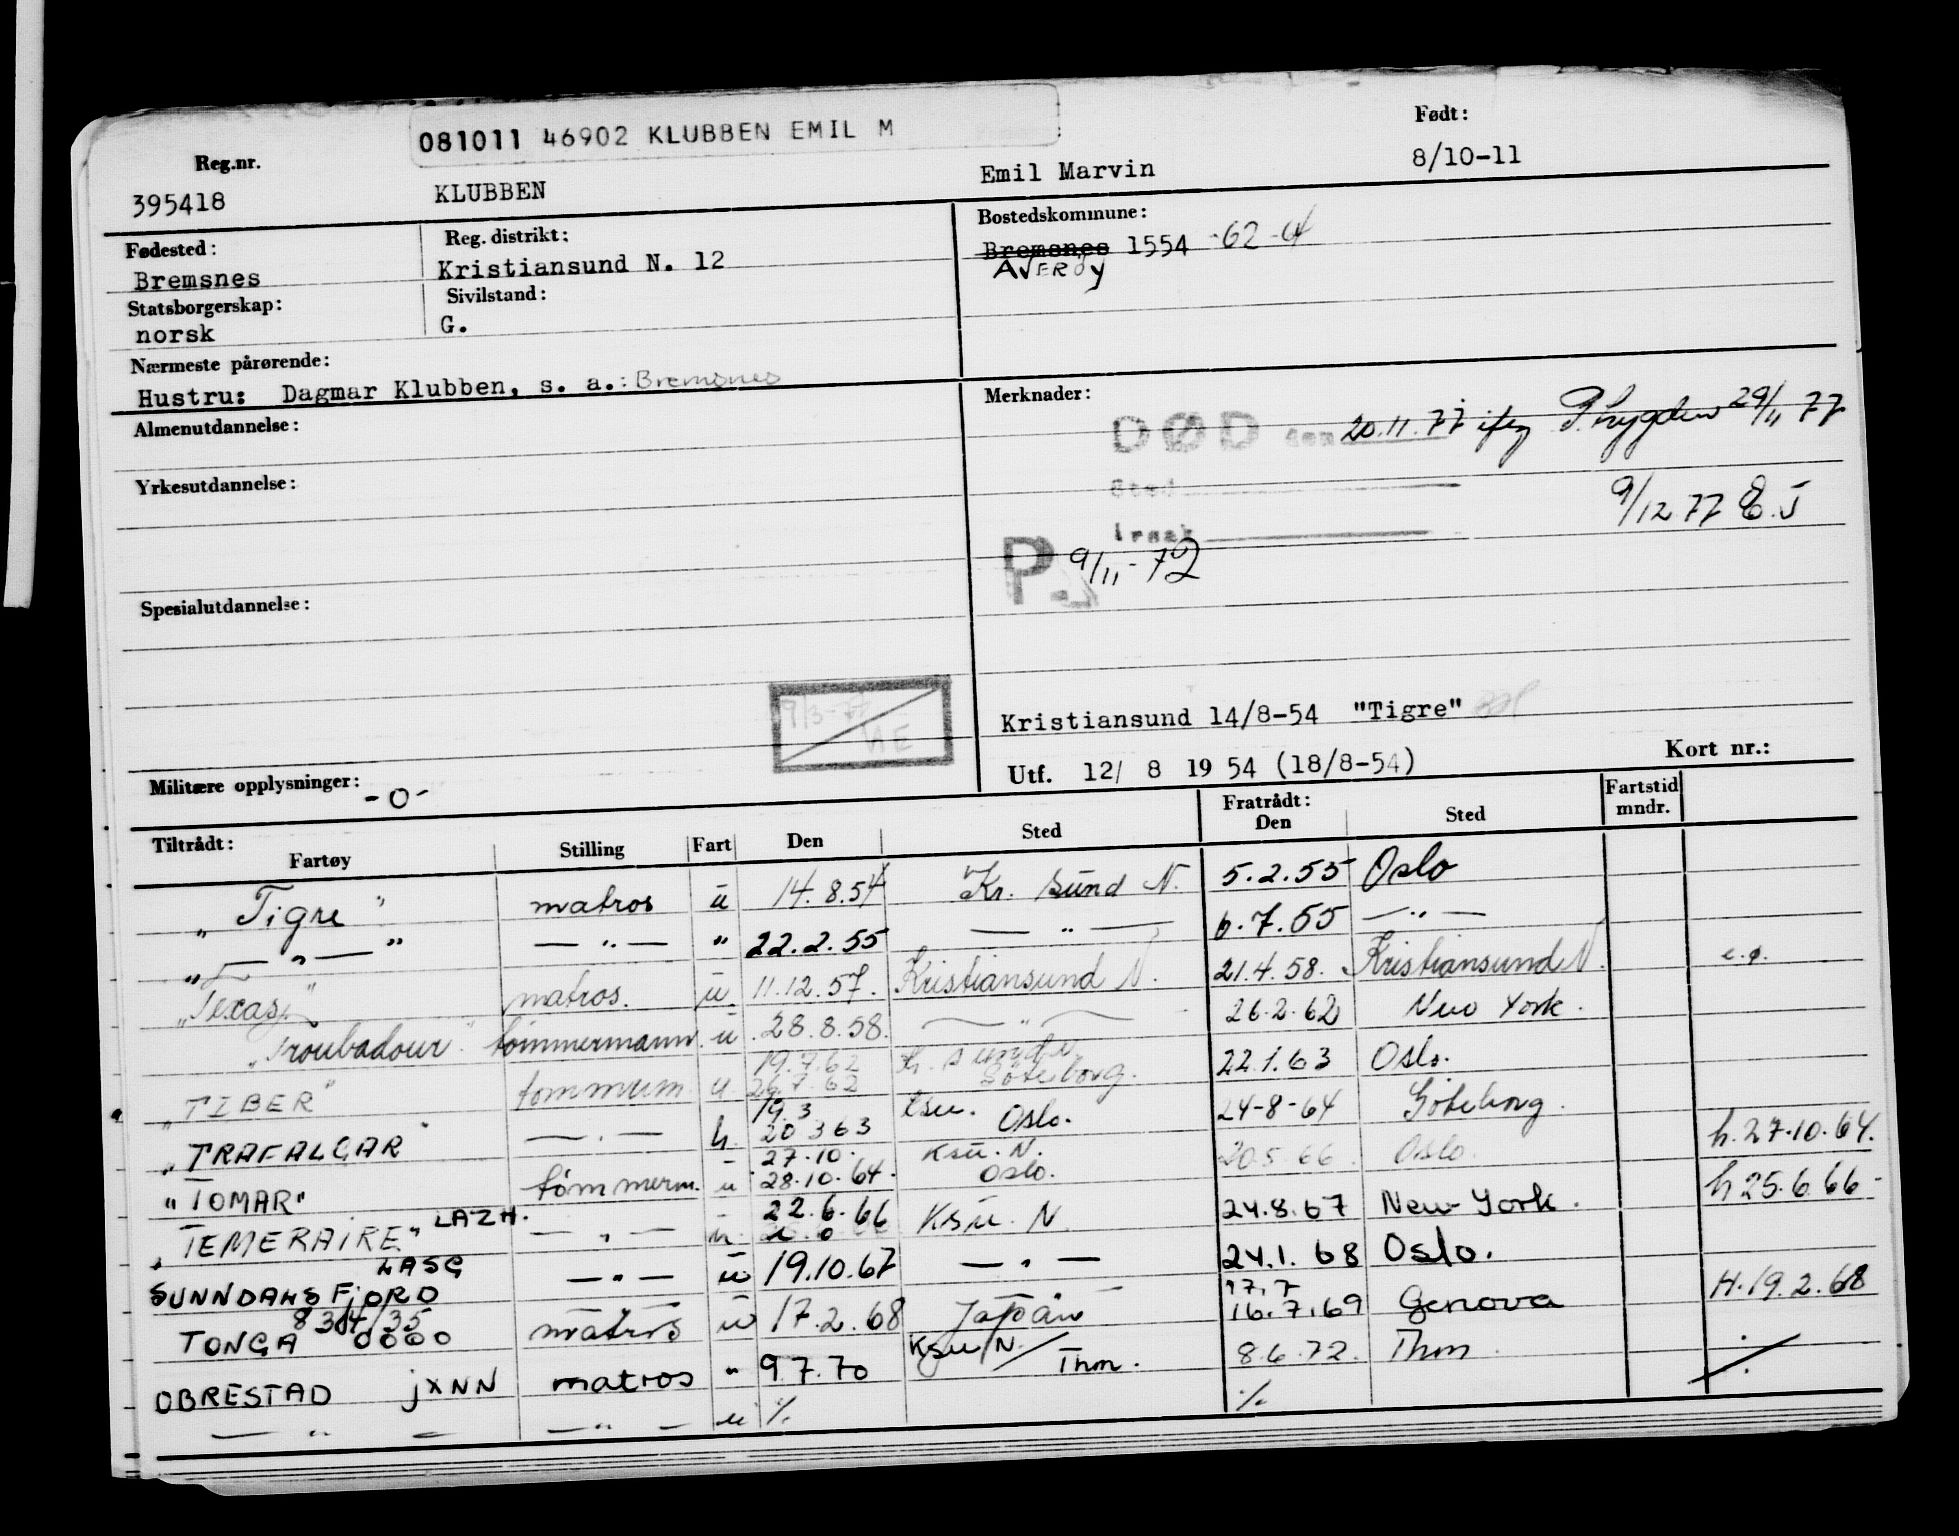 081011 46902 KLUBBEN EMIL M
Reg.nr. Født:
395418 KLUBBEN Emil Marvin 8/10-11
Fødested: Reg. distrikt: Bostedskommune:
Bremsnes Kristiansund N. 12 Bremsnes 1554 -62-
AVERØY
Statsborgerskap: Sivilstand:
norsk G.
Nærmeste pårørende:
Hustru: Dagmar Klubben, s. a.: Bremsnes
Almenutdannelse: Merknader:
DØD den 20.11.77 29/11 77
Yrkesutdannelse:
Sted 9/12 77 E.J
Årsak
P 9/11-72
Spesialutdannelse:
Kristiansund 14/8-54 "Tigre"
Utf. 12/ 8 19 54 (18/8-54) Kort nr.:
Militære opplysninger: -0-
Tiltrådt: Fratrådt: Fartstid mndr.
Fartøy Stilling Fart Den Sted Den Sted
"Tigre" matros u 14.8.54 Kr. sund N. 5.2.55 Oslo
" — " — " — " — " 22.2.55 — " — 6.7.55 — " —
"Texas" matros. u 11.12.57. Kristiansund N. 21.4.58. Kristiansund N.
"Troubadour" tømmermann u 28.8.58. — " — 26.2.62 New York.
19.7.62
"TIBER" tømmerm. u 26.7.62 Göteborg. 22.1.63 Oslo.
19.3 Ksu.
"TRAFALGAR" — " — 20 3 63 Oslo. 24-8-64 Göteborg.
27.10. Ksu. N.
"TOMAR" tømmerm. u 28.10.64. Oslo. 20.5.66. Oslo. h.27.10.64.
"TEMERAIRE" LAZH. — " — 22.6.66 Ksu. N 24.8.67 New-York. h 25.6.66-
LASG
SUNNDALSFJORD — " — u 19.10.67 — " — 24.1.68 Oslo.
8304/35 17.7
TONGA 0000 matros u 17.2.68 Japan 16.7.69 Genova H.19.2.68
OBRESTAD JXNN matros " 9.7.70 Ksu N/Thm. 8.6.72. Thm.
— " — — " — u ./. ./.